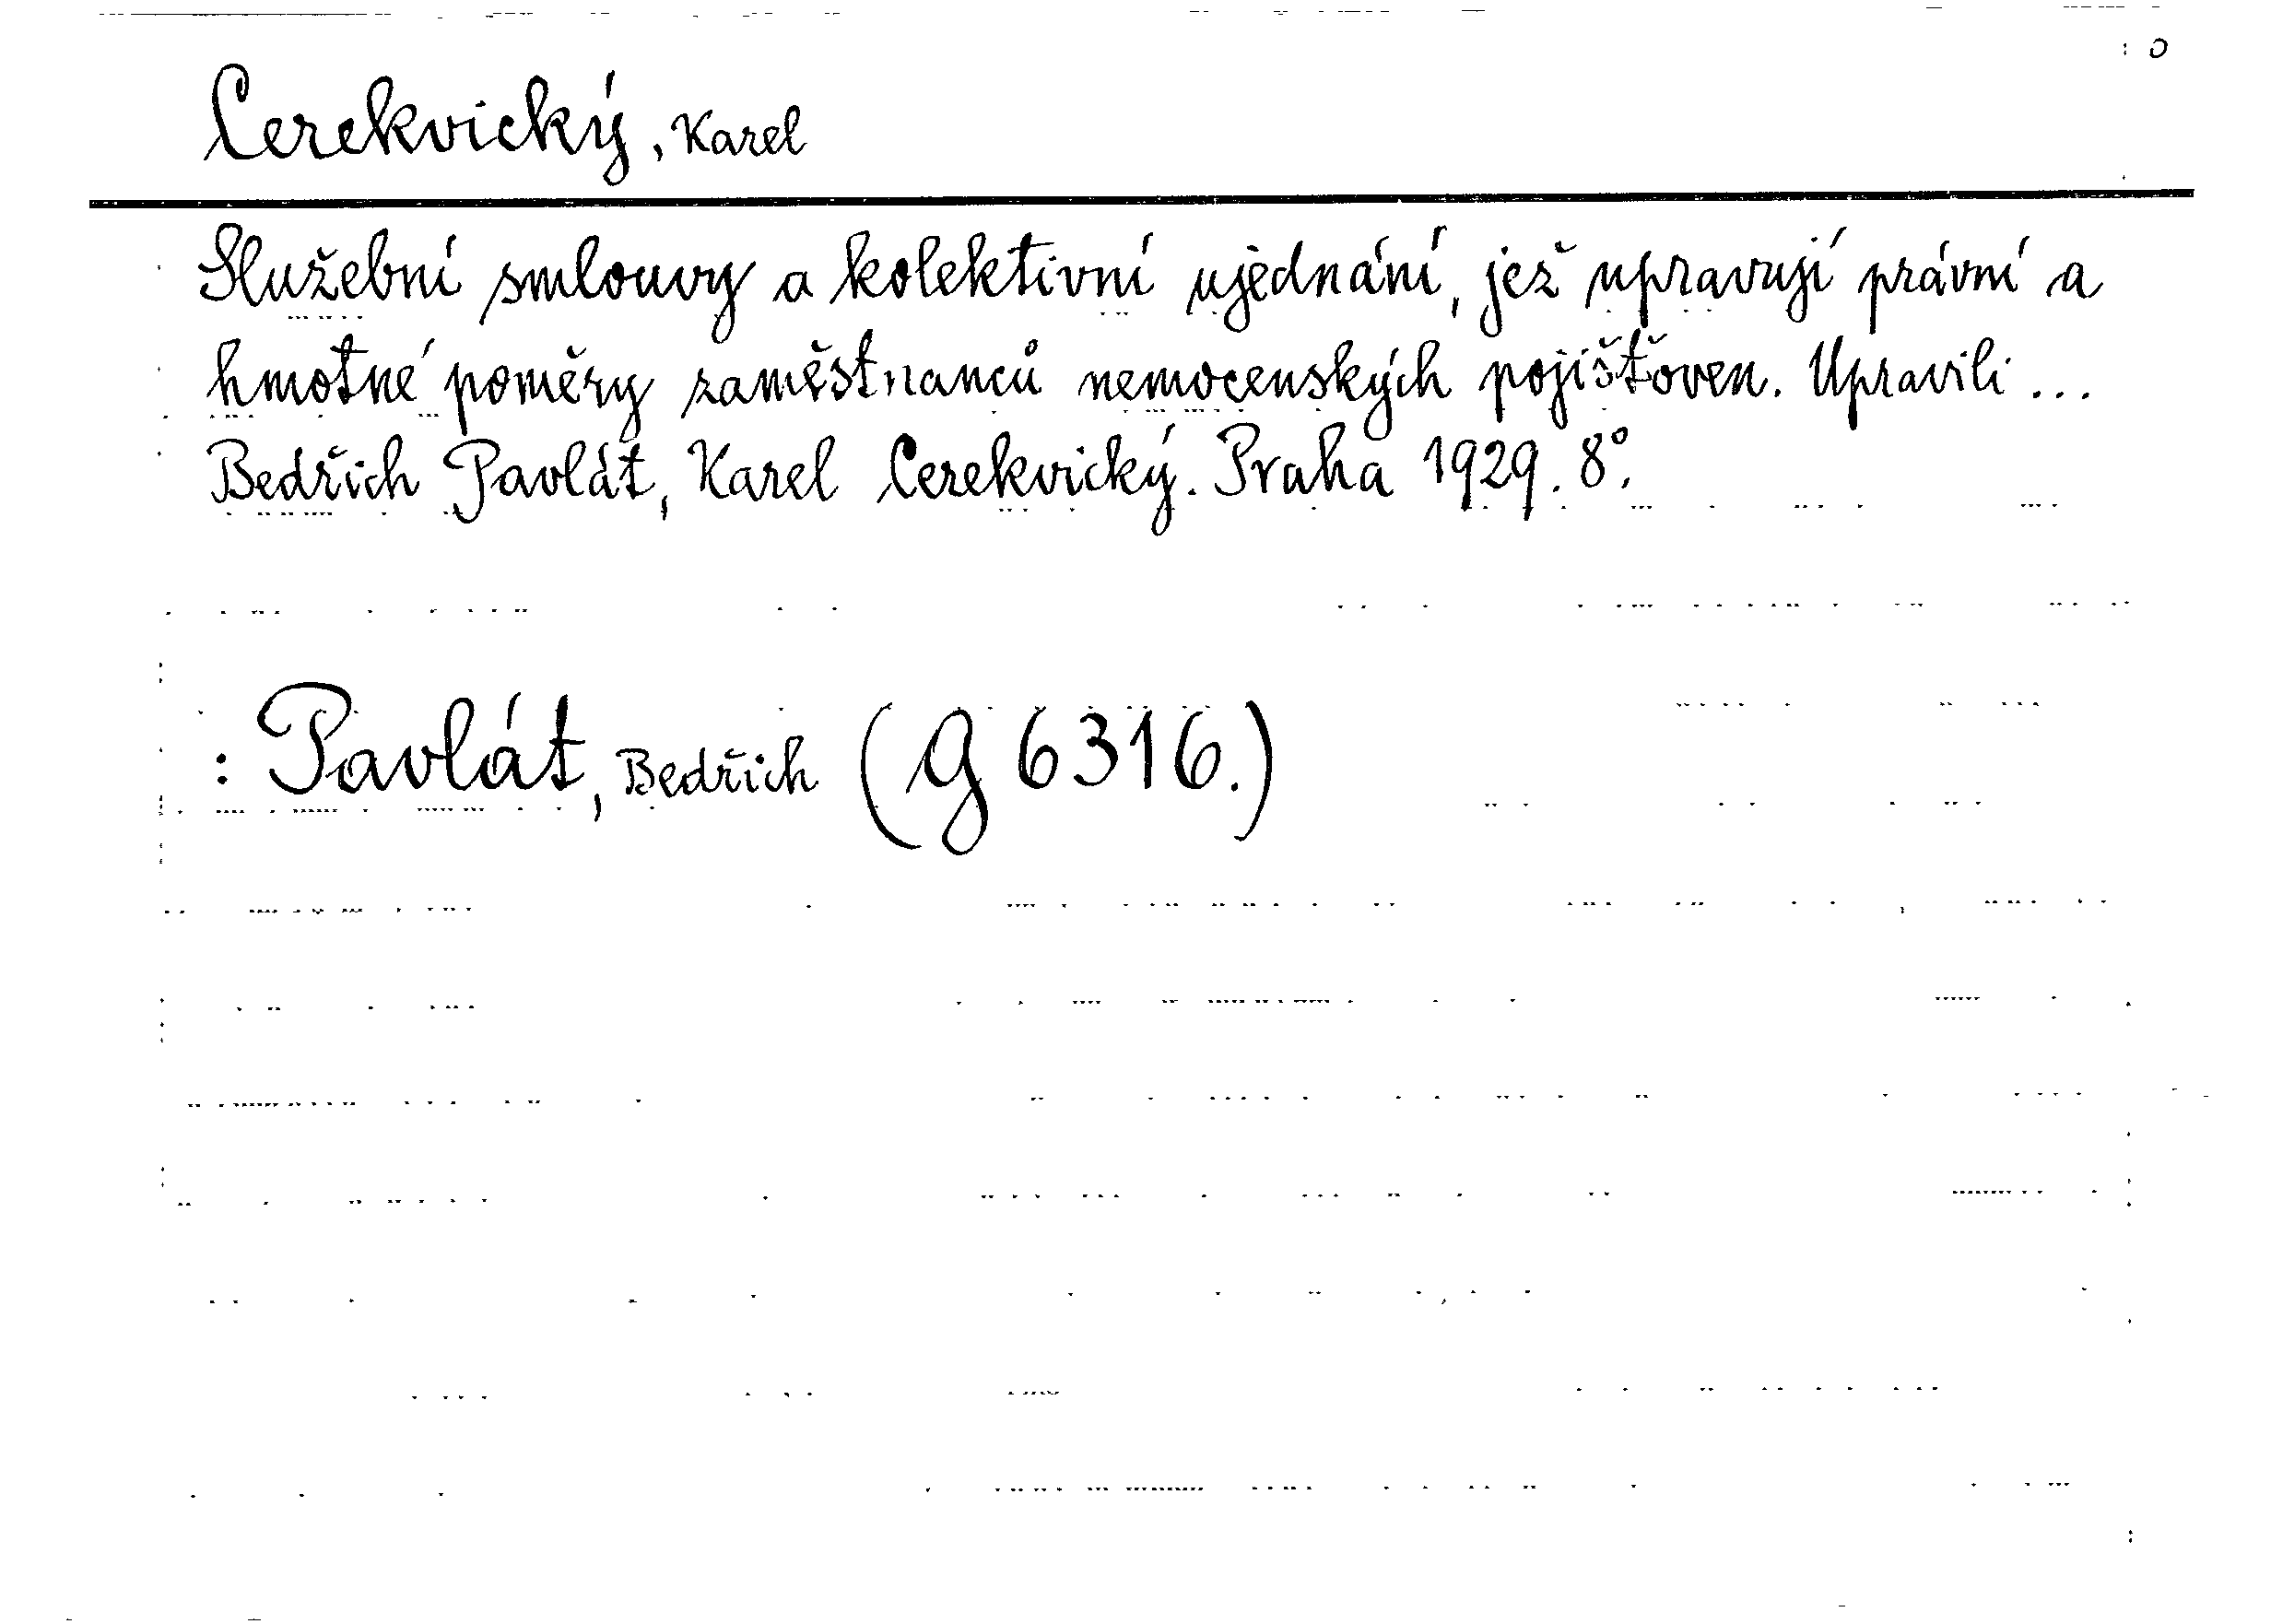 Cerekvický, Karel
Služební smlouvy a kolektivní ujednání, jež upravují právní a
hmotné poměry zaměstnanců nemocenských pojišťoven. Upravili ...
Bedřich Pavlát, Karel Cerekvický. Praha 1929. 8°.
: Pavlát, Bedřich (G 6316.)